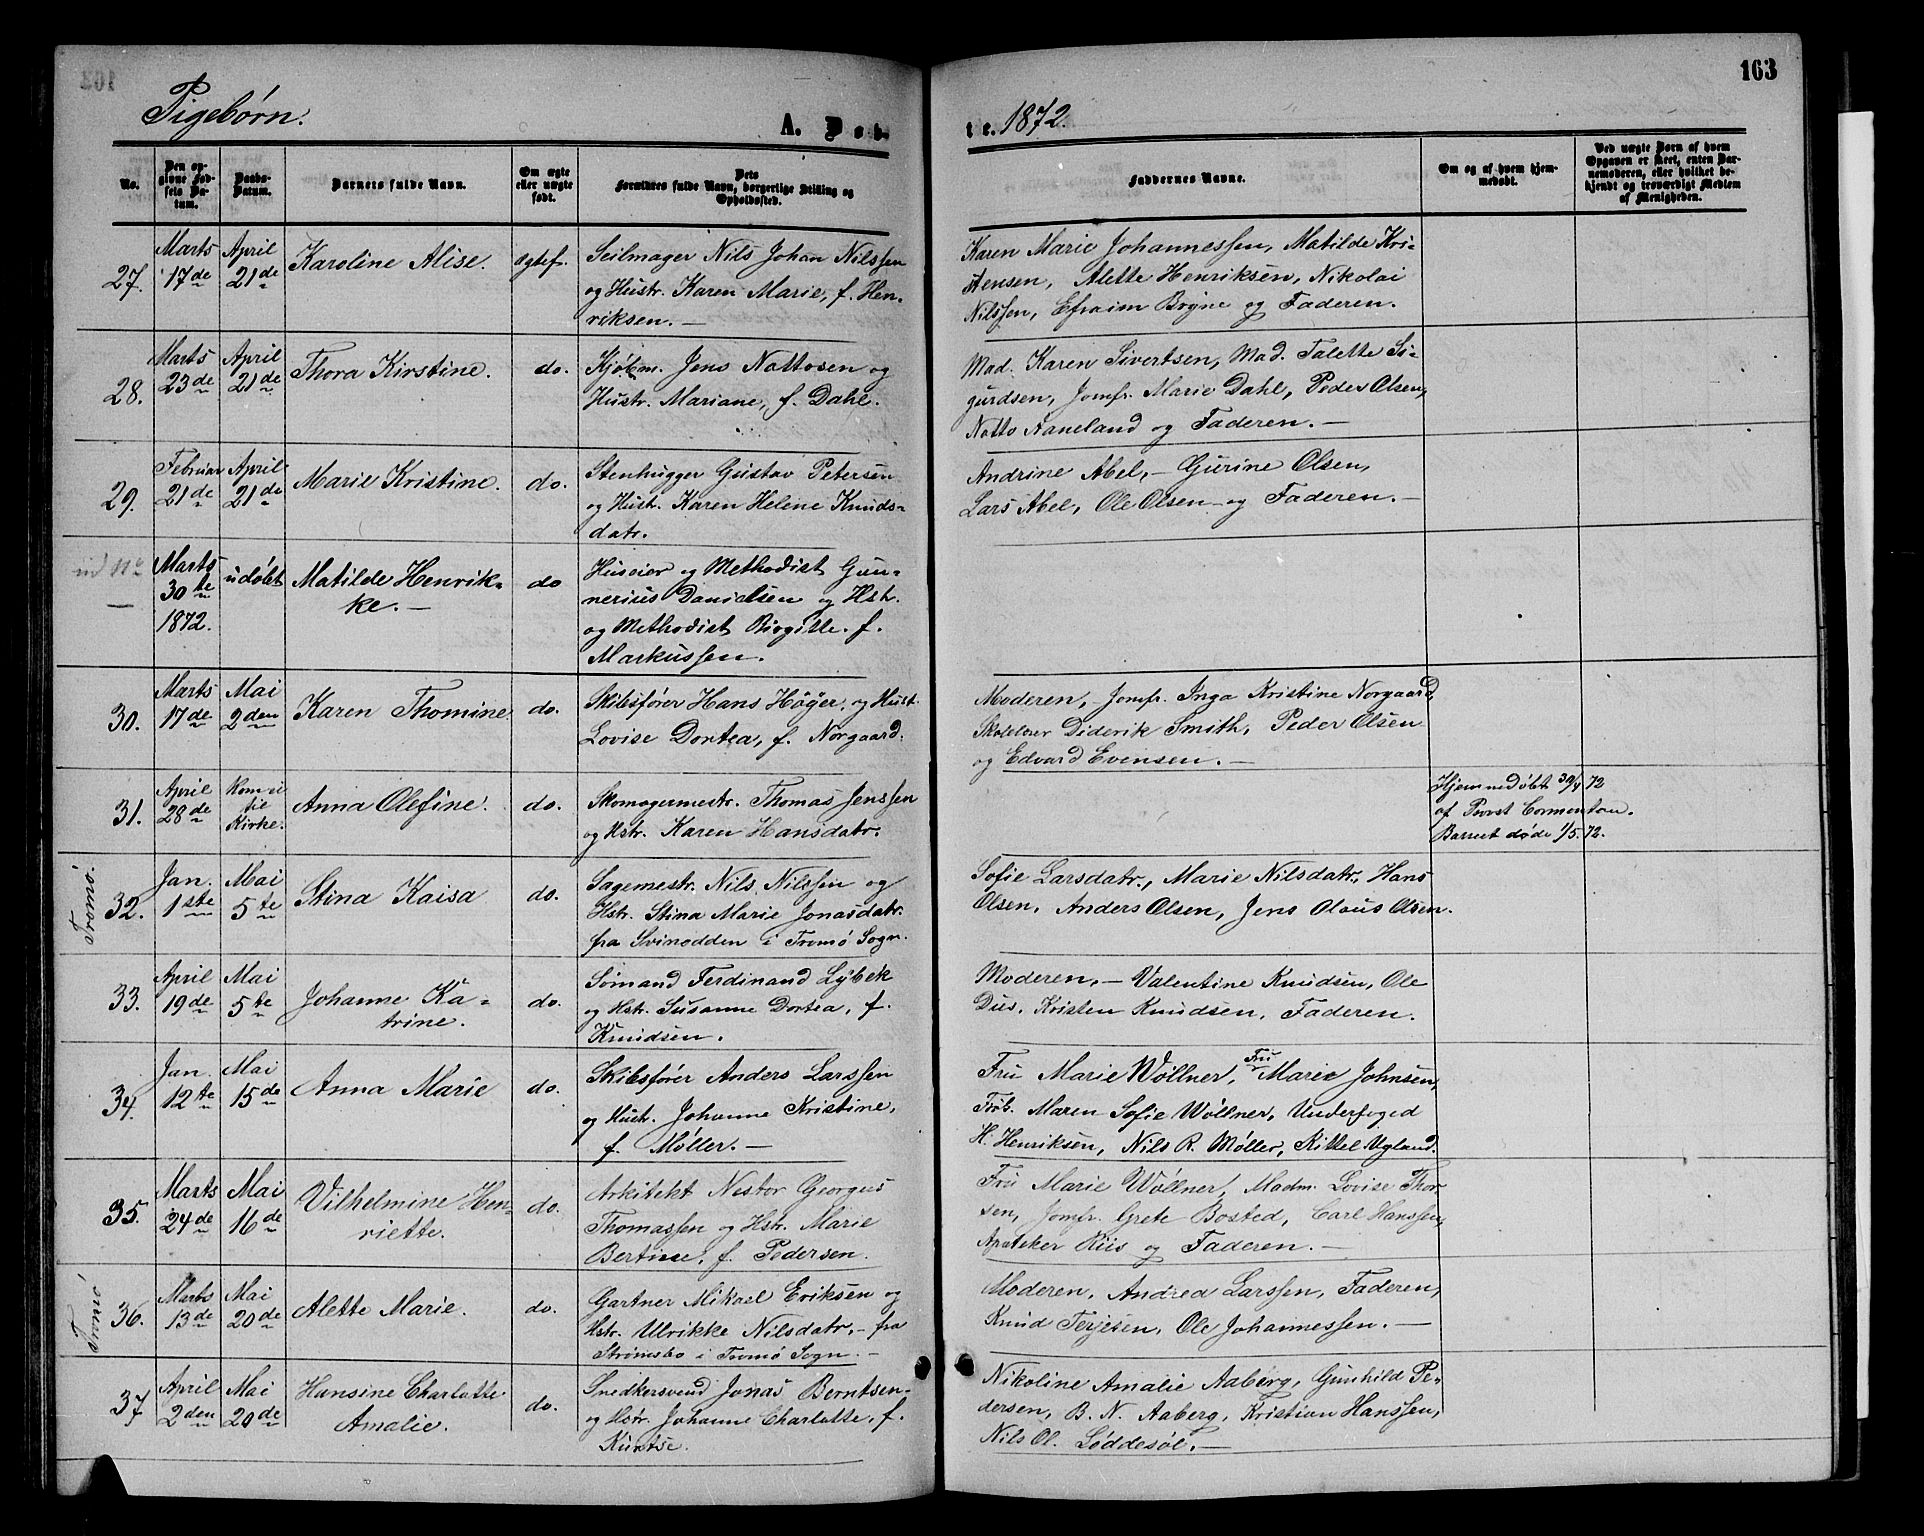 163
Pigebørn. A. Døb- te. 1872.
No.
Den op-
givne Fød-
sels Da-
tum.
Daabs-
Datum.
Barnets fulde Navn.
Om ægte
eller uægte
født.
Dets
Forældres fulde Navn, borgerlige Stilling og
Opholdssted.
Faddernes Navne.
Om og af hvem hjem-
medøbt.
Ved uægte Børn af hvem
Opgaven er skeet, enten Bar-
nemoderen, eller hvilket be-
kjendt og troværdigt Medlem
af Menigheden.
27.
Marts
17de
April
21de
Karoline Alise.
ægtef.
Seilmager Nils Johan Nilssen
og Hustr. Karen Marie, f. Hen-
riksen. —
Karen Marie Johannessen, Matilde Kri-
stensen, Alette Henriksen, Nikolai
Nilssen, Efraim Bryne og Faderen.
28.
Marts
23de
April
21de
Thora Kirstine.
do.
Kjøbm. Jens Nottosen og
Hustr. Mariane, f. Dahl.
Mad. Karen Sivertsen, Mad. Talette Si-
gurdsen, Jomfr. Marie Dahl, Peder Olsen,
Notto Naneland og Faderen. —
29.
Februar
21de
April
21de
Marie Kristine.
do.
Stenhugger Gustav Petersen
og Hustr. Karen Helene Knuds-
datr.
Andrine Abel, — Gurine Olsen,
Lars Abel, Ole Olsen og Faderen. —
ud No
—
Marts
30te
1872.
udøbt
Matilde Henrik-
ke. —
do
Huseier og Methodist Gun-
nerius Danielsen og Hstr.
og Methodist Birgitte. f.
Markussen.
30.
Marts
17de
Mai
2den
Karen Thomine.
do.
Skibsfører Hans Höÿer, og Hust.
Lovise Dortea, f. Norgaard.
Moderen, Jomfr. Inga Kristine Norgaard,
Skolelærer Diderik Smith, Peder Olsen
og Edvard Evensen. —
31.
April
28de
Kom ei
til
Kirke.
Anna Olefine.
do.
Skomagermestr. Thomas Jenssen
og Hstr. Karen Hansdatr.
Hjemmedøbt 30/4 72
af Provst Cormontan.
Barnet døde 1/5. 72.
Tromø.
32.
Jan.
1ste
Mai
5te
Stina Kaisa
do.
Sagemestr. Nils Nilssen og
Hstr. Stina Marie Jonasdatr.
fra Svinodden i Tromø Sogn.
Sofie Larsdatr., Marie Nilsdatr., Hans
Olsen, Anders Olsen, Jens Olaus Olsen.
33.
April
19de
Mai
5te
Johanne Ka-
trine.
do.
Sømand Ferdinand Lÿbek
og Hstr. Susanne Dortea, f.
Knudsen.
Moderen, — Valentine Knudsen, Ole
Dus, Kristen Knudsen, Faderen.
34.
Jan.
12te
Mai
15de
Anna Marie
do.
Skibsfører Anders Larssen
og Hust. Johanne Kristine,
f. Møller. —
Fru Marie Wøllner, Fru Marie Johnsen,
Frøk. Maren Sofie Wøllner, Underfoged
H. Henriksen, Nils R. Møller, Kittel Ugland.
35.
Marts
24de
Mai
16de
Vilhelmine Hen-
riette.
do.
Arkitekt Nestor Georgus
Thomassen og Hstr. Marie
Bertine, f. Pedersen.
Fru Marie Wøllner, Madm. Lovise Thor-
sen, Jomfr. Grete Bosted, Carl Hanssen,
Apoteker Riis og Faderen. —
Tromø
36.
Marts
13de
Mai
20de
Alette Marie.
do.
Gartner Mikael Eriksen og
Hstr. Ulrikke Nilsdatr, — fra
Strømsbo i Tromø Sogn. —
Moderen, Andrea Larssen, Faderen,
Knud Terjesen, Ole Johannessen. —
37
April
2den
Mai
20de
Hansine Charlotte
Amalie.
do.
Snedkersvend Jonas Berntsen
og Hstr. Johanne Charlotte, f.
Kuntse.
Nikoline Amalie Aaberg, Gunhild Pe-
dersen, B. N. Aaberg, Kristian Hanssen,
Nils Ol. Løddesøl. —